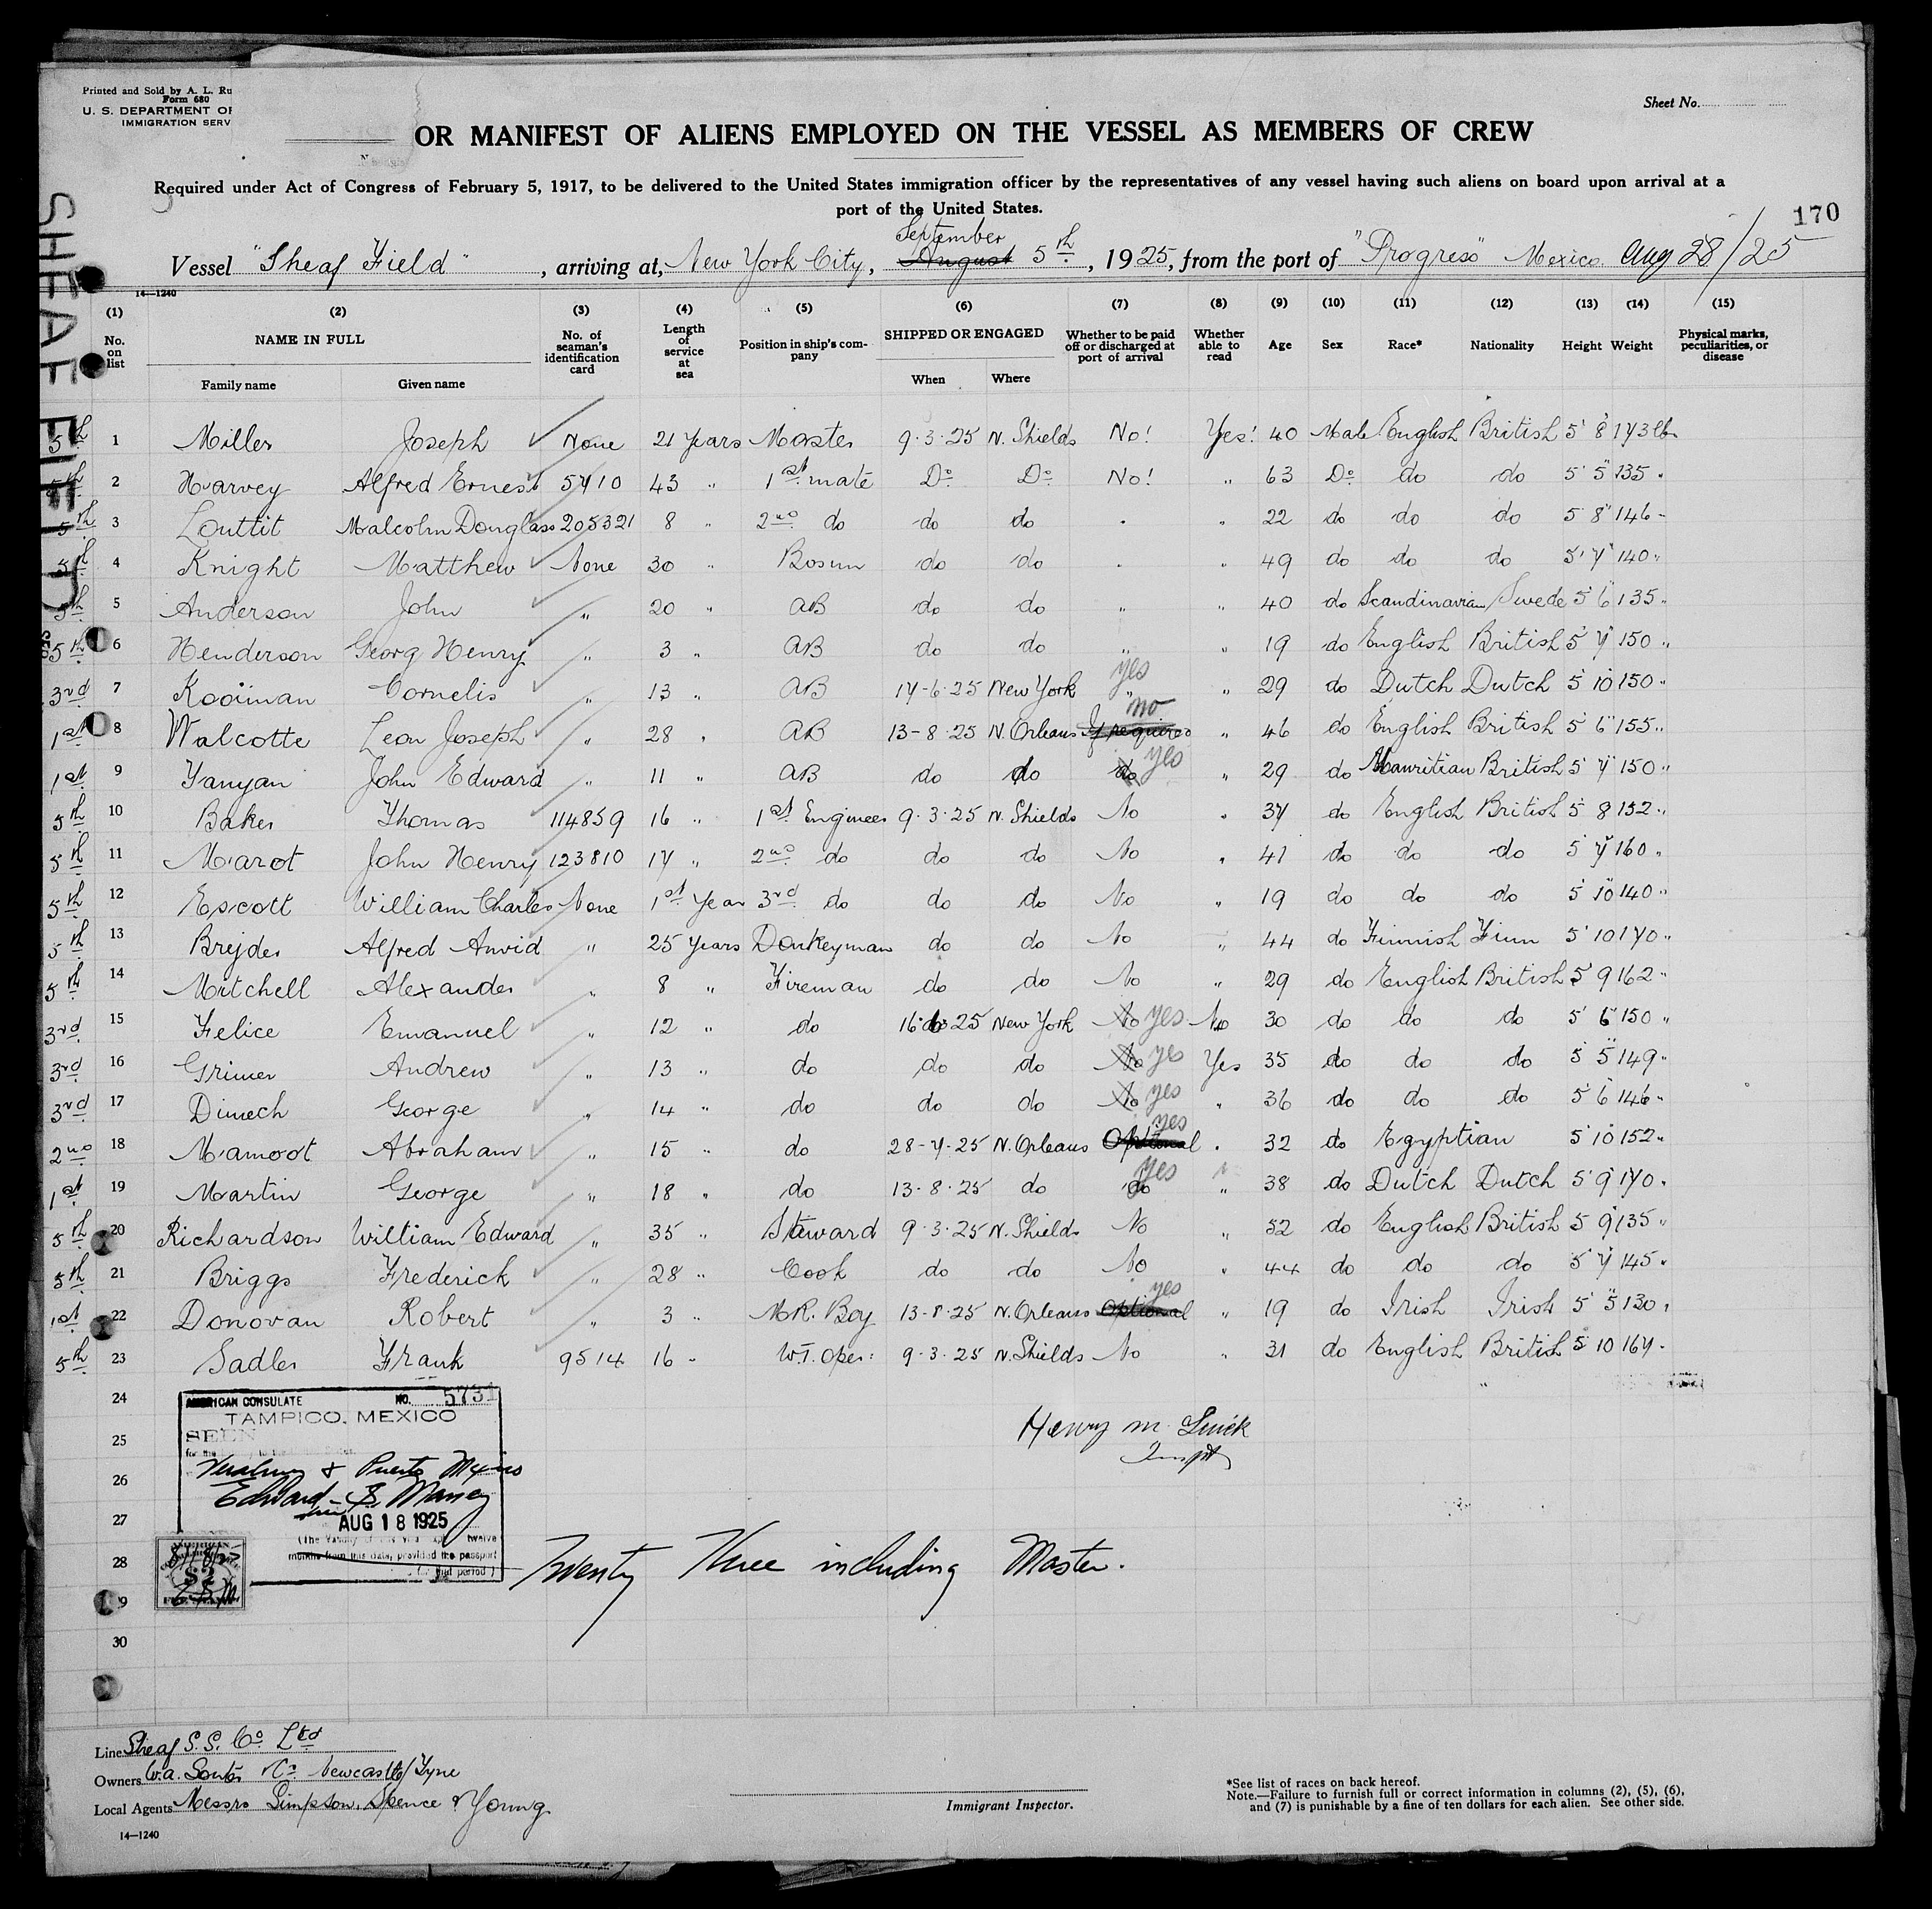 Printed and Sold by A. L. Ru
Form 680
U. S. DEPARTMENT OF
IMMIGRATION SERV
Sheet No.
OR MANIFEST OF ALIENS EMPLOYED ON THE VESSEL AS MEMBERS OF CREW
Required under Act of Congress of February 5, 1917, to be delivered to the United States immigration officer by the representatives of any vessel having such aliens on board upon arrival at a
port of the United States.
170
SHEAF FIELD
September
Vessel "Sheaf Field", arriving at, New York City, August 5th, 1925, from the port of "Progreso" Mexico. Aug 28/25
14—1240
(1) (2) (3) (4) (5) (6) (7) (8) (9) (10) (11) (12) (13) (14) (15)
No. on list NAME IN FULL Family name Given name No. of seaman's identification card Length of service at sea Position in ship's company SHIPPED OR ENGAGED When Where Whether to be paid off or discharged at port of arrival Whether able to read Age Sex Race* Nationality Height Weight Physical marks, peculiarities, or disease
5th 1 Miller Joseph None 21 Years Master 9.3.25 N. Shields No! Yes! 40 Male English British 5' 8" 173 lbs
5th 2 Harvey Alfred Ernest 5710 43 " 1st mate Do Do No! " 63 Do do do 5' 5" 135 "
5th 3 Louttit Malcolm Douglass 205321 8 " 2nd do do do " " 22 do do do 5' 8" 146 "
5th 4 Knight Matthew None 30 " Bosun do do " " 49 do do do 5' 7" 140 "
5th 5 Anderson John " 20 " AB do do " " 40 do Scandinavian Swede 5' 6" 135 "
5th 6 Henderson Georg Henry " 3 " AB do do " " 19 do English British 5' 7" 150 "
3rd 7 Kooiman Cornelis " 13 " AB 17-6-25 New York " yes " 29 do Dutch Dutch 5' 10" 150 "
1st 8 Walcotte Leon Joseph " 28 " AB 13-8-25 N. Orleans If required no " 46 do English British 5' 6" 155 "
1st 9 Yanyan John Edward " 11 " AB do do do yes " 29 do Mauritian British 5' 7" 150 "
5th 10 Baker Thomas 114859 16 " 1st Engineer 9.3.25 N. Shields No " 37 do English British 5' 8" 152 "
5th 11 Marot John Henry 123810 17 " 2nd do do do No " 41 do do do 5' 7" 160 "
5th 12 Escott William Charles None 1st Year 3rd do do do No " 19 do do do 5' 10" 140 "
5th 13 Brejder Alfred Anvid " 25 Years Donkeyman do do No " 44 do Finnish Finn 5' 10 170 "
5th 14 Mitchell Alexander " 8 " Fireman do do No " 29 do English British 5' 9 162 "
3rd 15 Felice Emanuel " 12 " do 16 25 New York No yes No 30 do do do 5' 6" 150 "
3rd 16 Grimer Andrew " 13 " do do do No yes Yes 35 do do do 5' 5" 149 "
3rd 17 Dimech George " 14 " do do do No yes " 36 do do do 5' 6" 146 "
2nd 18 Mamoot Abraham " 15 " do 28-7-25 N. Orleans Optional yes " 32 do Egyptian 5' 10" 152 "
1st 19 Martin George " 18 " do 13-8-25 do do yes " 38 do Dutch Dutch 5' 9" 170 "
5th 20 Richardson William Edward " 35 " Steward 9.3.25 N. Shields No " 52 do English British 5' 9" 135 "
5th 21 Briggs Frederick " 28 " Cook do do No " 44 do do do 5' 7" 145 "
1st 22 Donovan Robert " 3 " M.R. Boy 13-8-25 N. Orleans Optional yes " 19 do Irish Irish 5' 5" 130 "
5th 23 Sadler Frank 9514 16 " W.T. Oper: 9.3.25 N. Shields No " 31 do English British 5' 10 167 "
24
25
26
27
28
29
30
AMERICAN CONSULATE NO. 5731
TAMPICO, MEXICO
SEEN
Veracruz & Puerto Mexico
Edward S. Maney
AUG 18 1925
months from this date, provided the passport
Henry M.
Inspt
Twenty Three including Master.
Line Sheaf S.S. Co Ltd
Owners W.A. Souter & Co Newcastle/Tyne
Local Agents Messrs Simpson, Spence & Young
Immigrant Inspector.
*See list of races on back hereof.
Note.—Failure to furnish full or correct information in columns (2), (5), (6),
and (7) is punishable by a fine of ten dollars for each alien. See other side.
14—1240